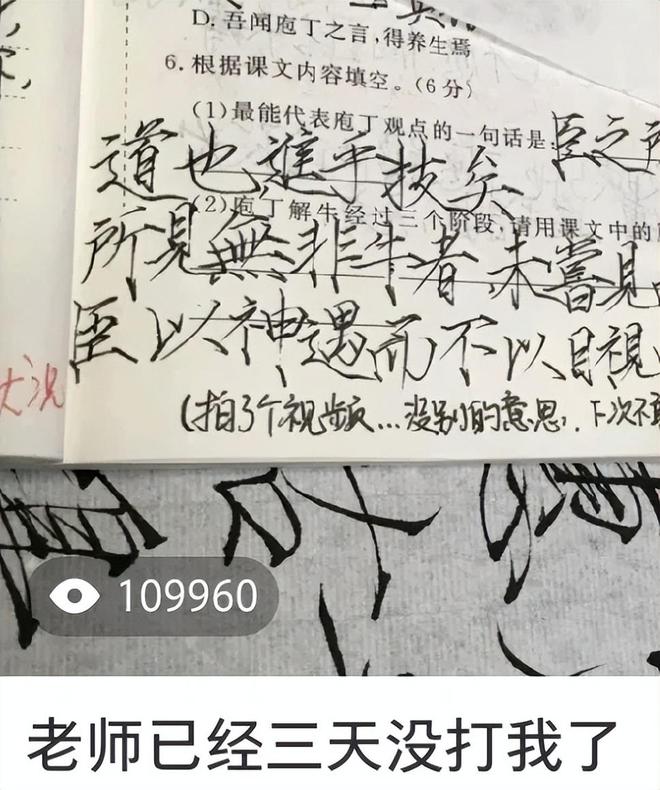 D. 吾闻庖丁之言,得养生焉
6. 根据课文内容填空。(6分)
(1)最能代表庖丁观点的一句话是:臣之所
道也,進乎技矣
(2)庖丁解牛经过三个阶段,请用课文中的
所見無非牛者 未嘗見
臣以神遇而不以目視
(拍了个视频...没别的意思,下次不
109960
老师已经三天没打我了